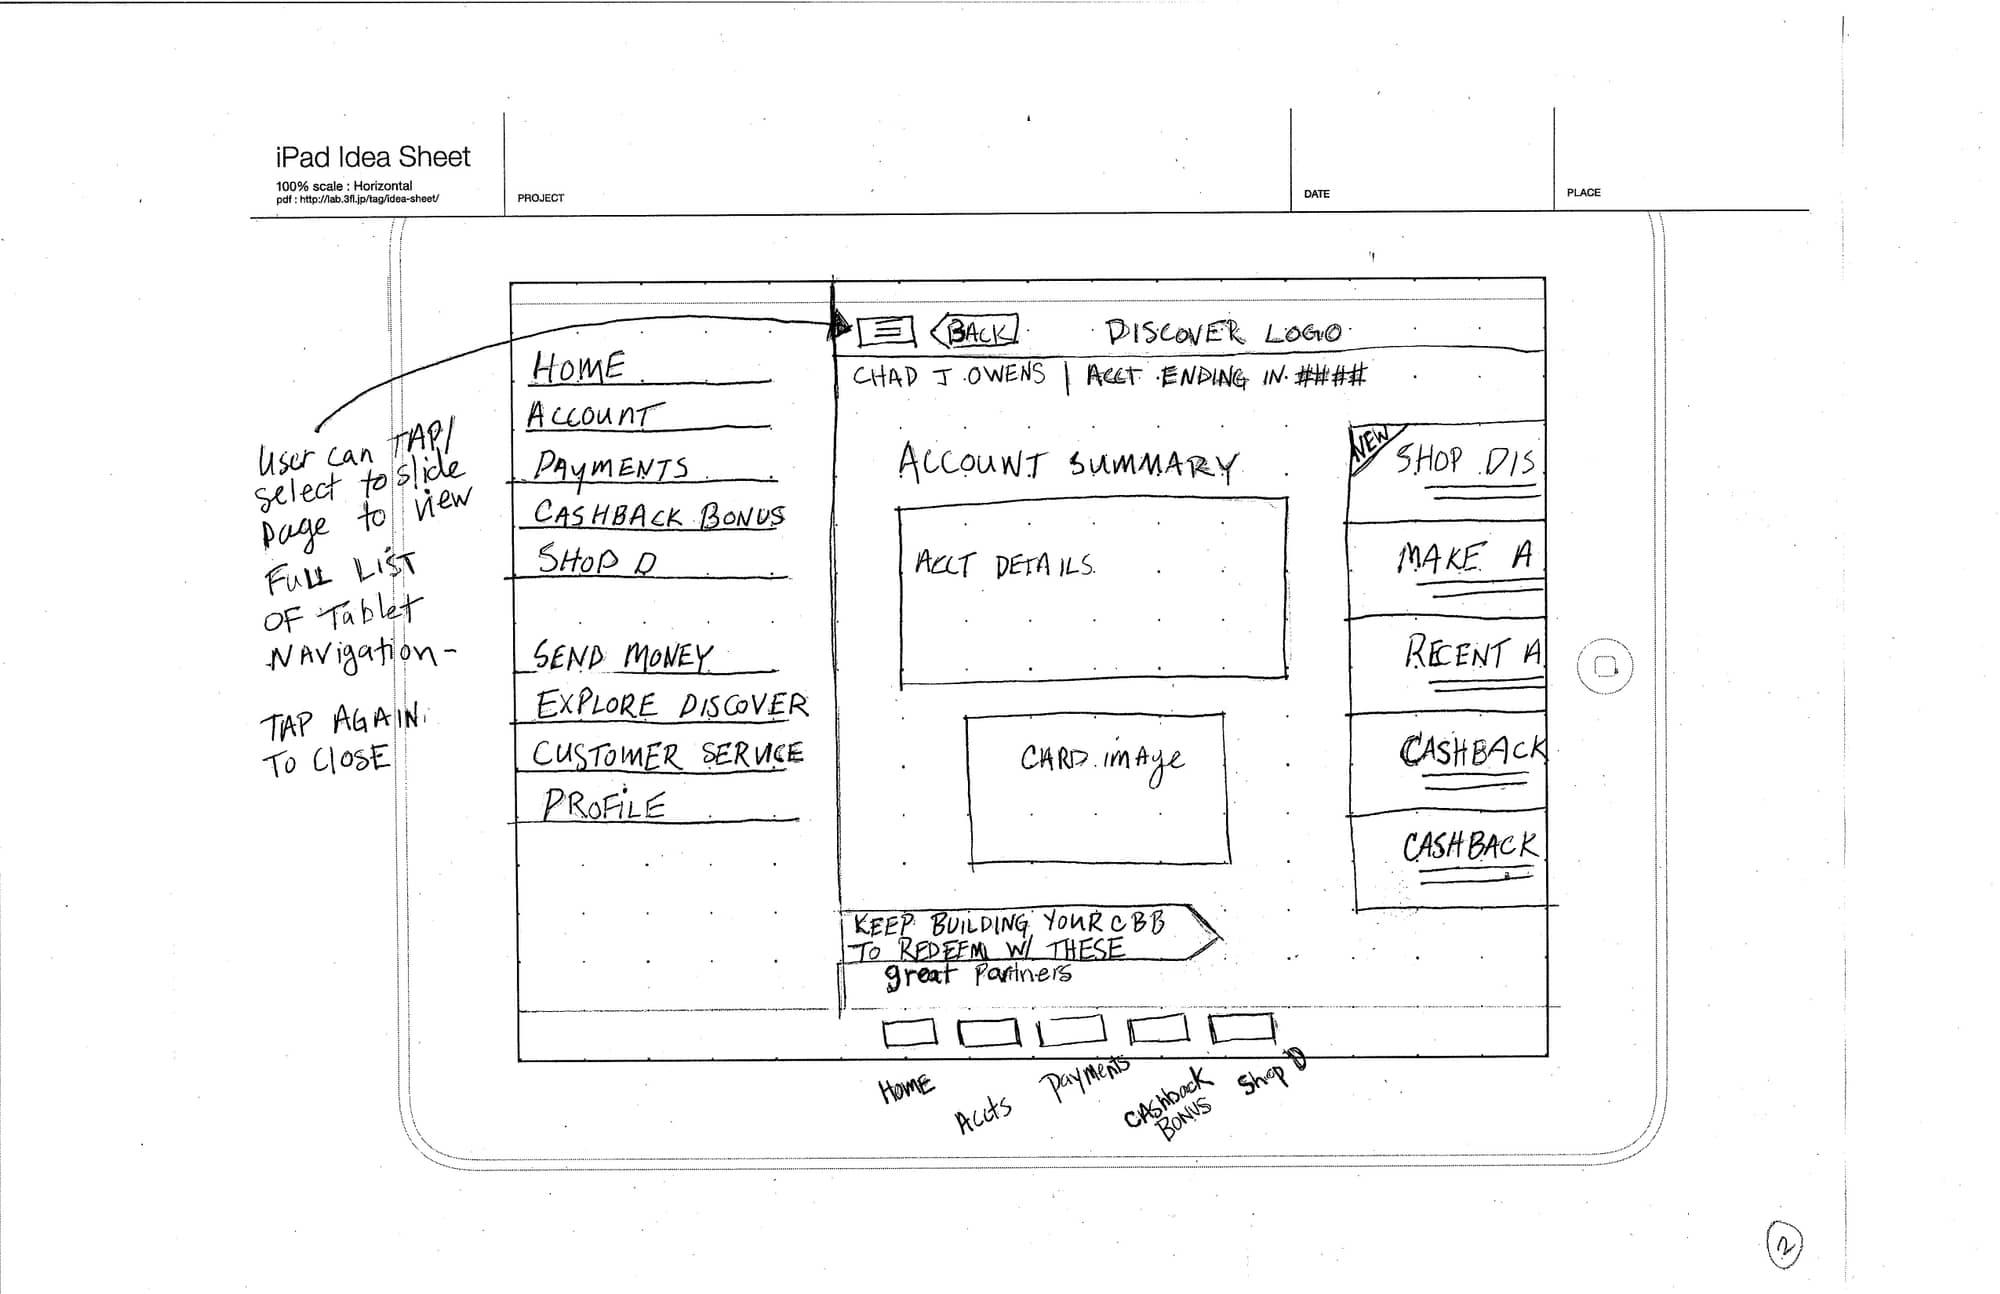 iPad Idea Sheet
100% scale : Horizontal
pdf : http://lab.3fl.jp/tag/idea-sheet/
PROJECT
DATE
PLACE
User can TAP/
select to slide
page to view
FULL LIST
OF Tablet
NAVigation-
TAP AGAIN
TO ClOSE
HOME
ACCOUNT
PAYMENTS
CASHBACK BONUS
SHOP D
SEND MONEY
EXPLORE DISCOVER
CUSTOMER SERVICE
PROFiLE
BACK
DISCOVER LOGO
CHAD J OWENS | ACCT ENDING IN ####
ACCOUNT SUMMARY
ACCT DETAILS
CARD imAge
KEEP BUILDING YOUR CBB
TO REDEEM W/ THESE
great Partners
NEW
SHOP DIS
MAKE A
RECENT A
CASHBACK
CASHBACK
HOME
Accts
Payments
CAshback
BONUS
Shop D
2